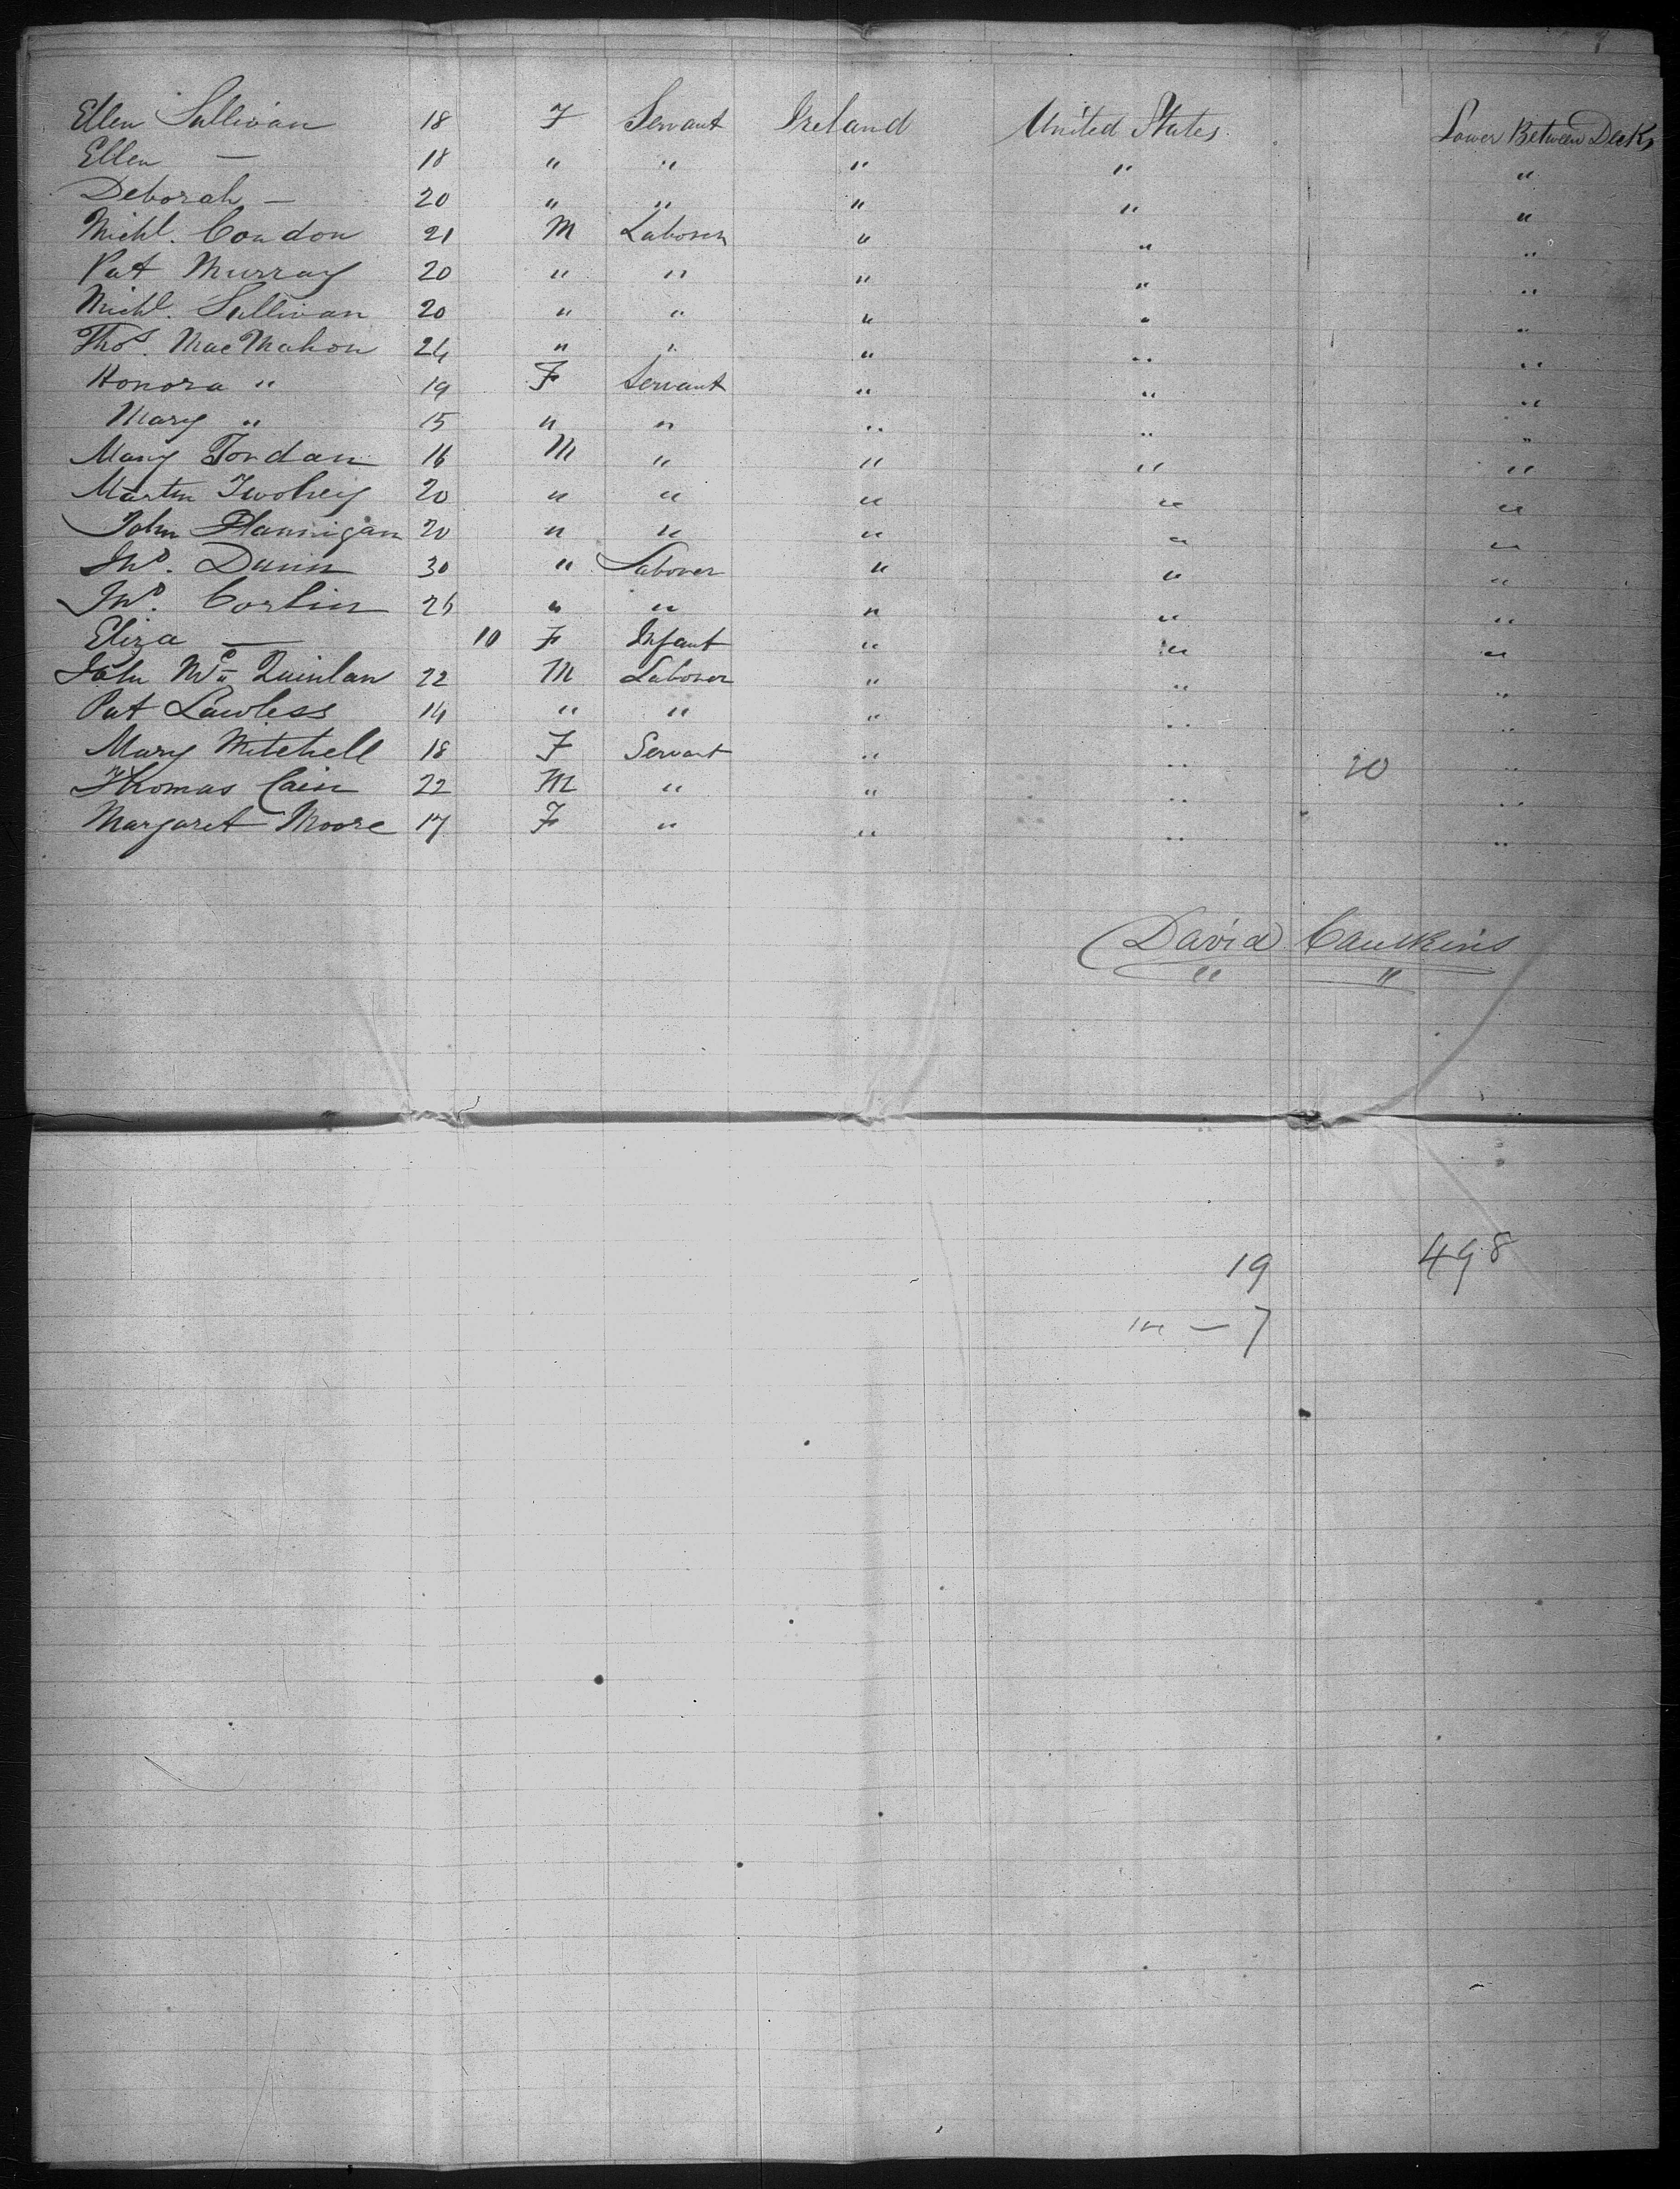 Ellen Sullivan 18 F Servant Ireland United States Lower Between Decks
Ellen — 18 " " " " "
Deborah — 20 " " " " "
Michl. Condon 21 M Laborer " " "
Pat Murray 20 " " " " "
Michl. Sullivan 20 " " " " "
Thos. MacMahon 24 " " " " "
Honora " 19 F Servant " " "
Mary " 15 " " " " "
Mary Jordan 16 M " " " "
Martin Twohey 20 " " " " "
John Flannigan 20 " " " " "
Jno. Dunn 30 " Laborer " " "
Jno. 26 " " " " "
Eliza — 10 F Infant " " "
John Mc Quinlan 22 M Laborer " " "
Pat Lawless 14 " " " " "
Mary Mitchell 18 F Servant " " "
Thomas Cain 22 M " " " 20 "
Margaret Moore 17 F " " " "
David Caulkins
" "
19 498
7